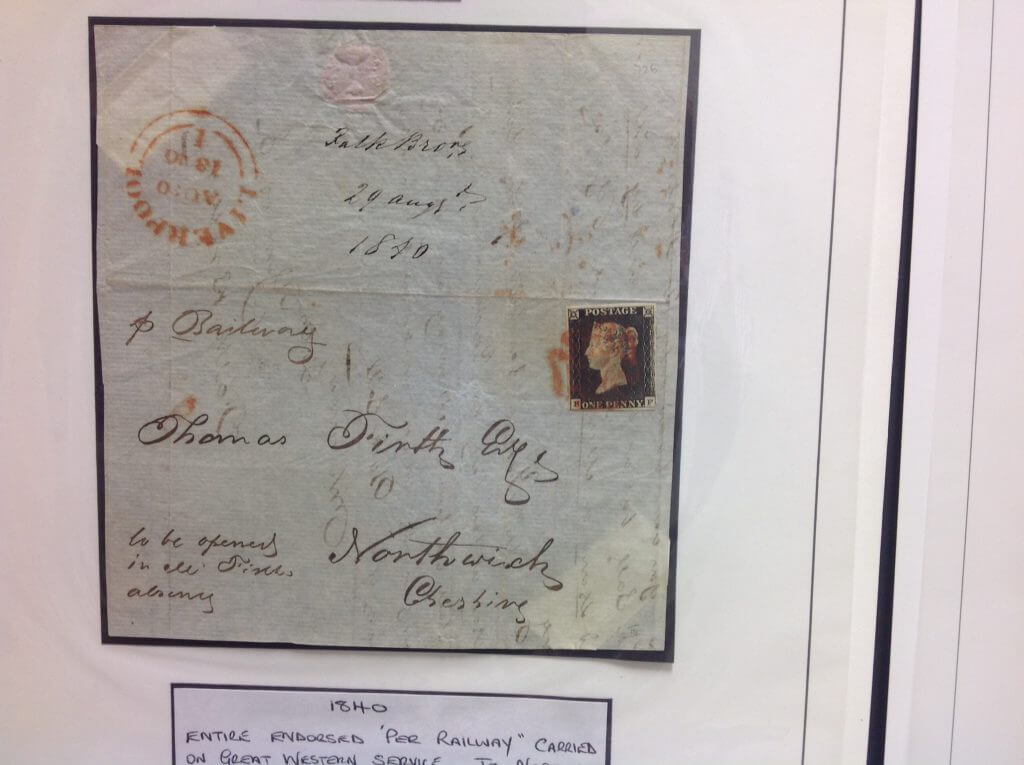 726
LIVERPOOL
AU 30
1840
Falk Bros
29 augst
1840
p Railway
POSTAGE
ONE PENNY
Thomas Firth Esq
Northwich
Cheshire
to be opened
in Mr Firths
absence
1840
ENTIRE ENDORSED "PER RAILWAY" CARRIED
ON GREAT WESTERN SERVICE